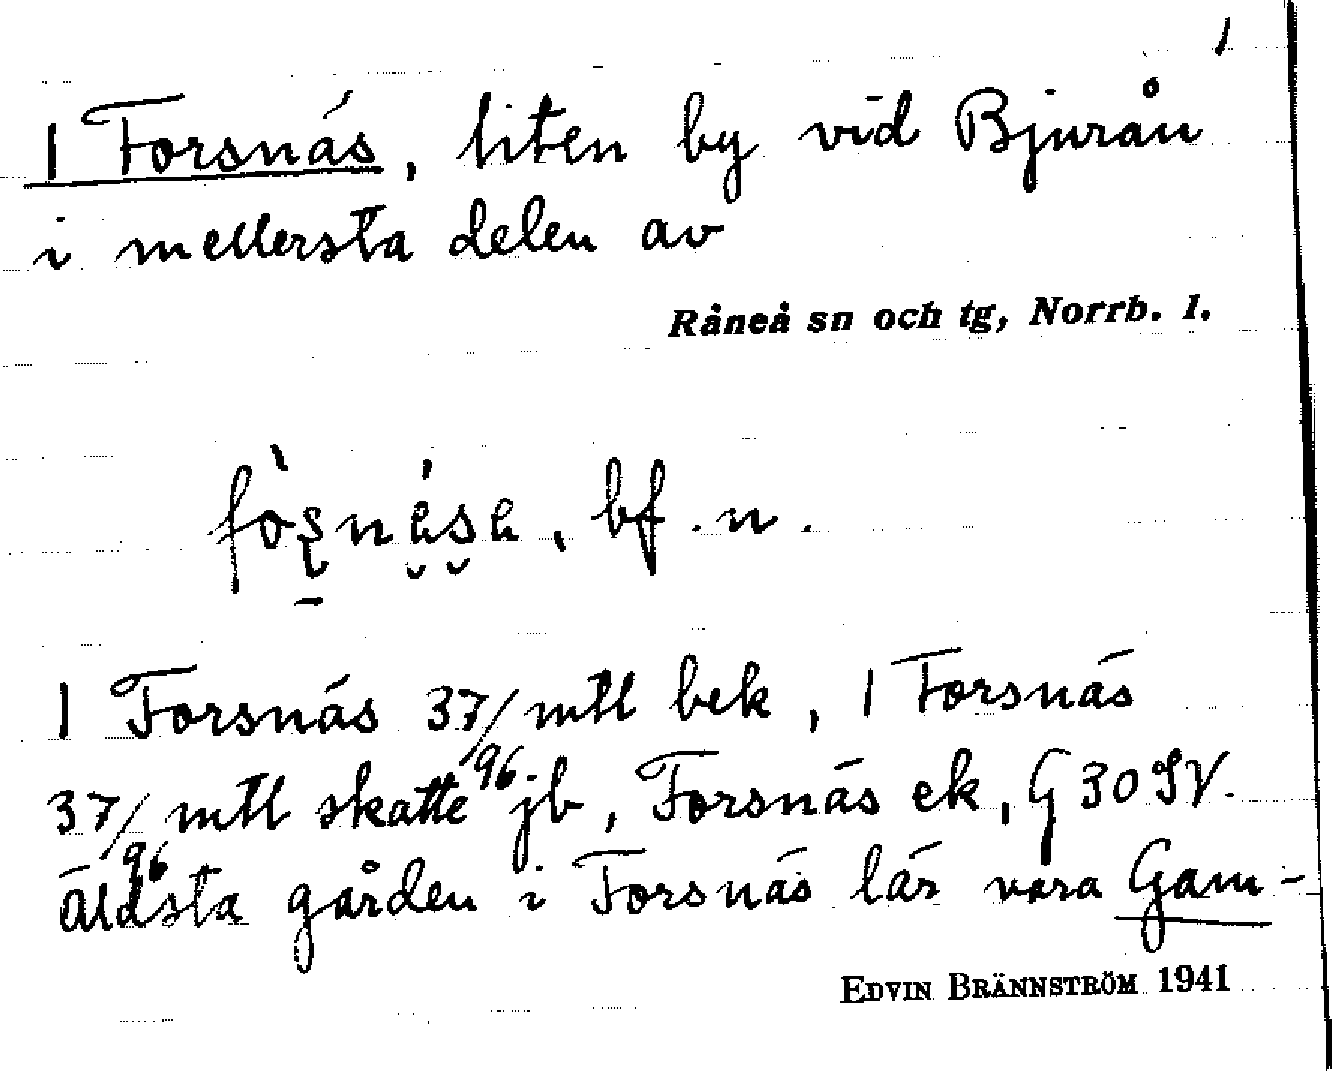 1
1 Forsnäs, liten by vid Bjurån
i mellersta delen av
Råneå sn och tg, Norrb. l.
bf. n.
1 Forsnäs 37/96 mtl bek, 1 Forsnäs
37/96 mtl skatte jb, Forsnäs ek, G 30 SV.
Äldsta gården i Forsnäs lär vara Gam-
EDVIN BRÄNNSTRÖM 1941